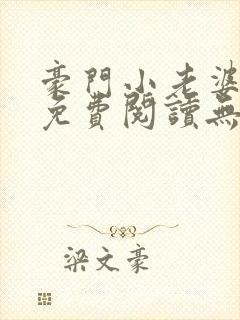 豪門小老婆
免費閱讀無
梁文豪